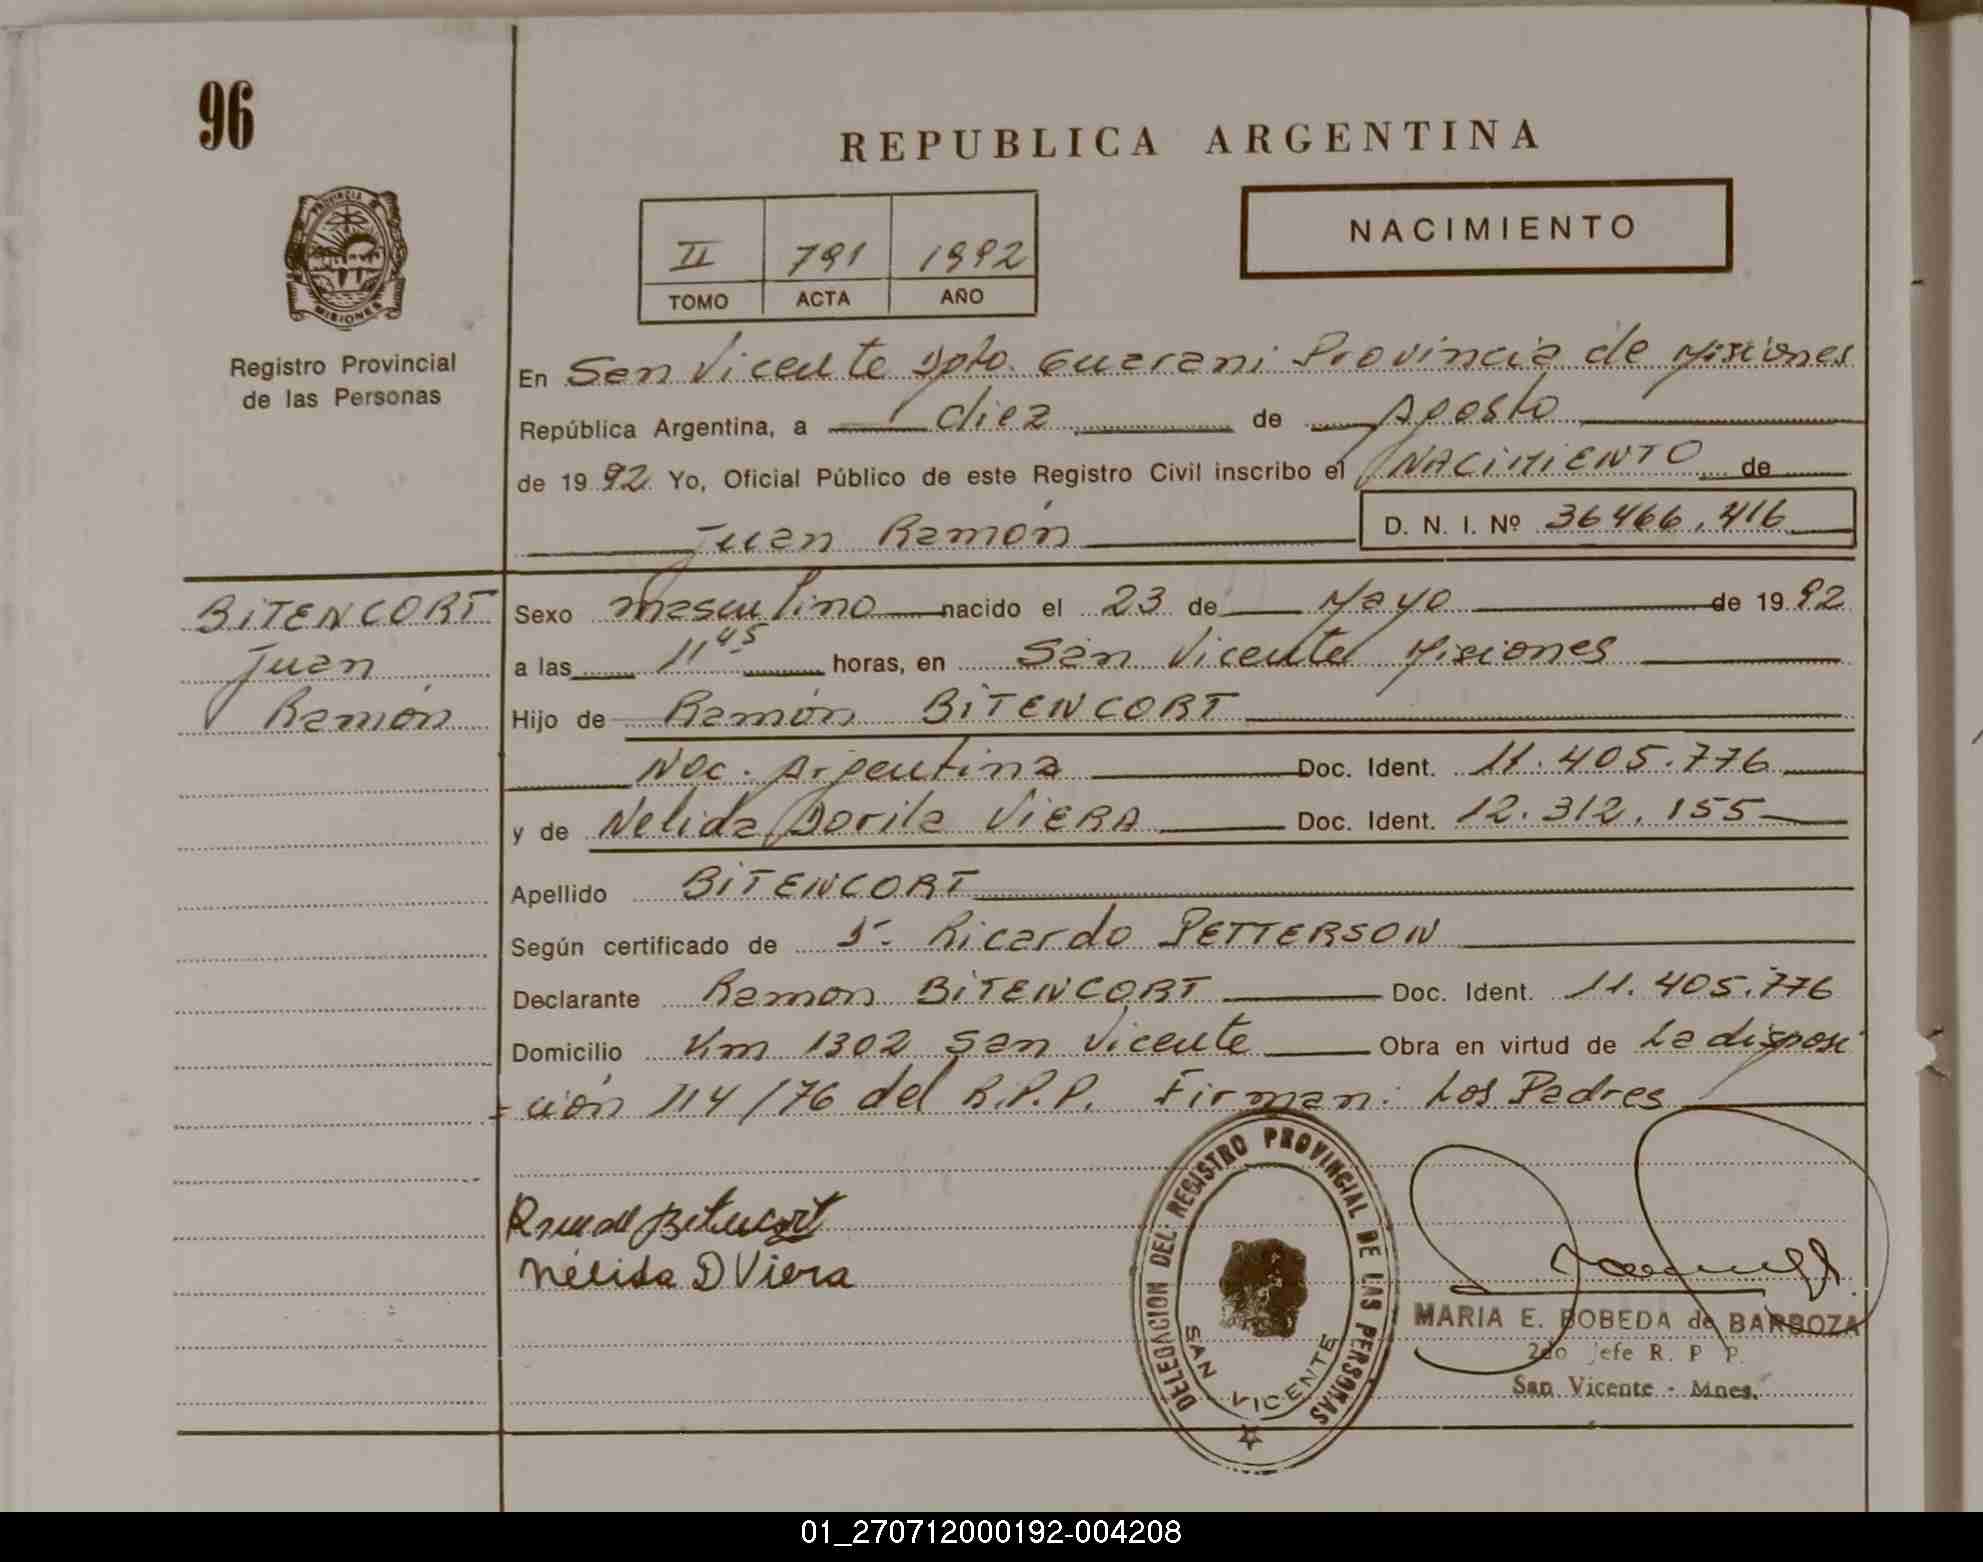 96
REPUBLICA ARGENTINA
PROVINCIA D MISIONES
II 791 1992
TOMO ACTA AÑO
NACIMIENTO
Registro Provincial
de las Personas
En San Vicente Dpto. Guarani Provincia de Misiones
República Argentina, a diez de Agosto
de 1992 Yo, Oficial Público de este Registro Civil inscribo el NACIMIENTO de
Juan Ramón D. N. I. Nº 36466.416
BITENCORT
Juan
Ramón
Sexo masculino nacido el 23 de Mayo de 1992
a las 11 45 horas, en San Vicente Misiones
Hijo de Ramón BITENCORT
Nac. Argentina Doc. Ident. 11.405.776
y de Nelida Dorila VIERA Doc. Ident. 12.312.155
Apellido BITENCORT
Según certificado de Ricardo PETTERSON
Declarante Ramon BITENCORT Doc. Ident. 11.405.776
Domicilio Km 1302 San Vicente Obra en virtud de La disposi
=ción 114/76 del R.P.P. Firman: Los Padres
Bitencort
Nélida D Viera
DELEGACION DEL REGISTRO PROVINCIAL DE LAS PERSONAS
SAN VICENTE
MARIA E. BOBEDA de BARBOZA
2do Jefe R. P P.
San Vicente - Mnes.
01_270712000192-004208